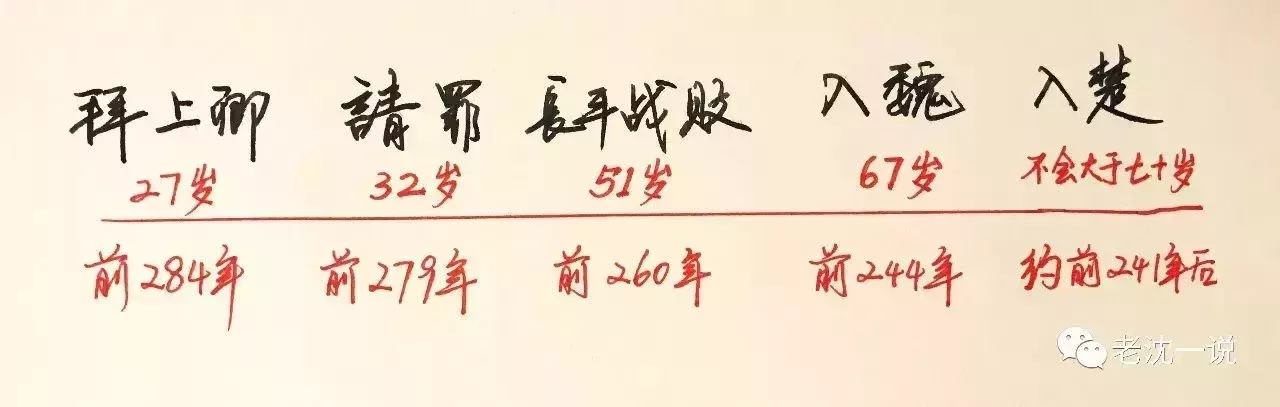 拜上卿 請罪 長平战败 入魏 入楚
27岁 32岁 51岁 67岁 不会大于七十岁
前284年 前279年 前260年 前244年 约前241年后
老沈一说